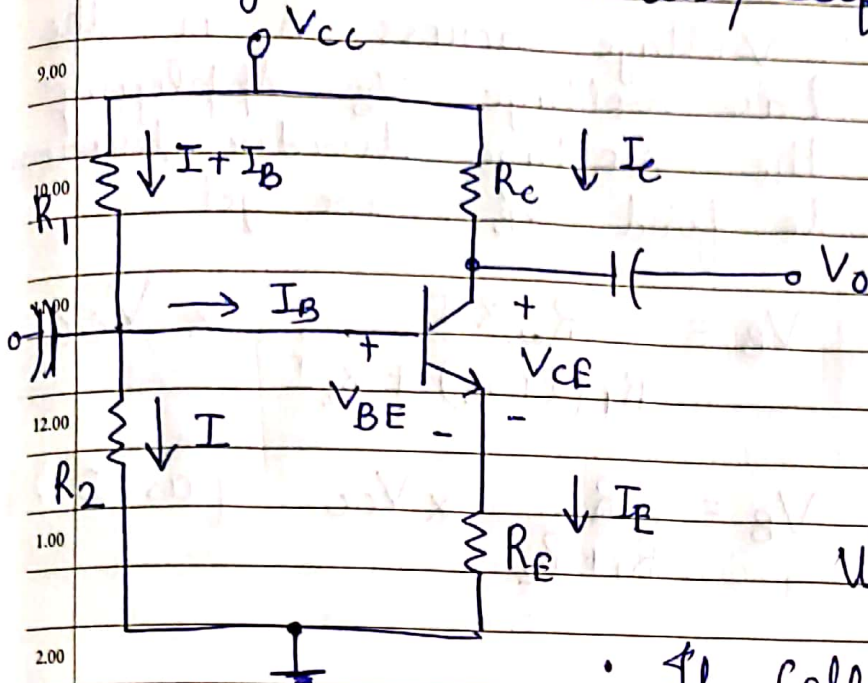 VCC
9.00
I + IB
IC
10.00
RC
R1
VO
IB
+
+
VCE
VBE
-
-
12.00
I
R2
IE
1.00
RE
2.00